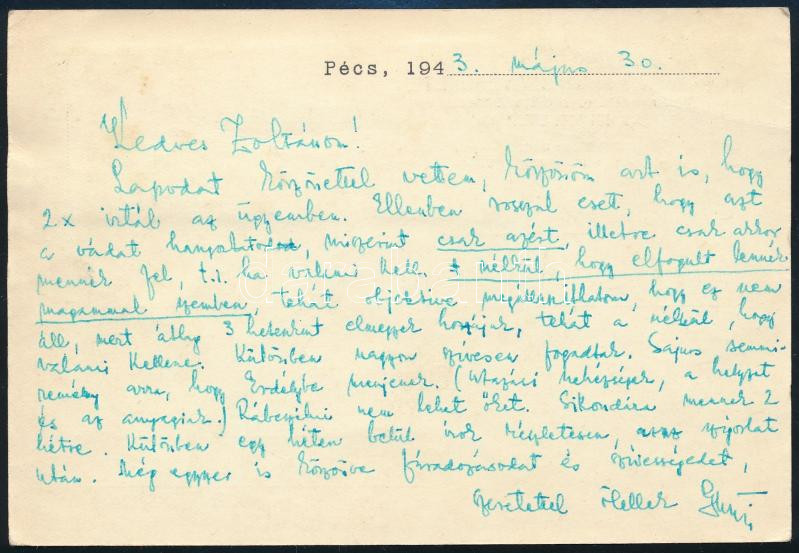 Pécs, 1943. május 30.
Kedves Zoltánom!
Lapodat köszönettel vettem, köszönöm azt is, hogy
2x írtál az ügyemben. Ellenben rosszul eset, hogy azt
a vádat hangoztatod, miszerint csak azért, illetve csak akkor
mennék fel, t.i. ha valami kell. A nélkül, hogy elfogult lennék
magammal szemben, tehát objective megállapíthatom, hogy ez nem
áll, mert átlag 3 hetenkint elmegyek hozzájuk, tehát a nélkül, hogy
valami kellene. Különben nagyon szívesen fogadtak. Sajnos semmi
remény arra, hogy Erdélybe menjenek. (Utazási nehézségek, a helyzet
és az anyagiak.) Rábeszélni nem lehet őket. Sikondára mennek 2
hétre. Különben egy héten belül írok részletesen, szigorlat
után. Még egyszer is köszönve fáradozásodat és szívességedet,
szeretettel ölellek